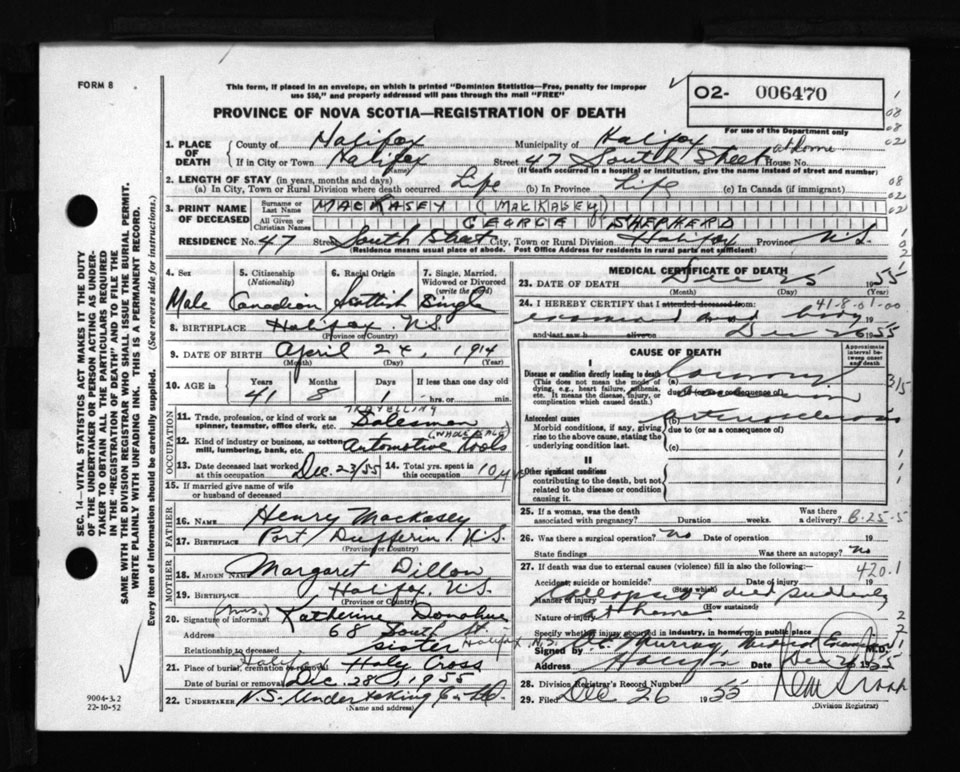 FORM 8
This form, if placed in an envelope, on which is printed "Dominion Statistics—Free, penalty for improper
use $50," and properly addressed will pass through the mail "FREE"
PROVINCE OF NOVA SCOTIA—REGISTRATION OF DEATH
O2- 006470
For use of the Department only
1. PLACE OF DEATH County of Halifax Municipality of Halifax at home
If in City or Town Halifax (Name) Street 47 South Street House No.
(If death occurred in a hospital or institution, give the name instead of street and number)
2. LENGTH OF STAY (in years, months and days)
(a) In City, Town or Rural Division where death occurred Life (b) In Province Life (c) In Canada (if immigrant)
3. PRINT NAME OF DECEASED Surname or Last Name MACKASEY (MACKASEY)
All Given or Christian Names GEORGE SHEPHERD
RESIDENCE No. 47 Street South Street City, Town or Rural Division Halifax Province N.S.
(Residence means usual place of abode. Post Office Address for residents in rural parts not sufficient)
4. Sex 5. Citizenship (Nationality) 6. Racial Origin 7. Single, Married, Widowed or Divorced (write the word)
Male Canadian Scottish Single
8. BIRTHPLACE Halifax N.S.
(Province or Country)
9. DATE OF BIRTH April 24, 1914
(Month) (Day) (Year)
10. AGE in Years Months Days If less than one day old
41 8 1 hrs. or min.
OCCUPATION
11. Trade, profession, or kind of work as spinner, teamster, office clerk, etc. TRAVELLING Salesman
12. Kind of industry or business, as cotton mill, lumbering, bank, etc. Automotive Tools (WHOLESALE)
13. Date deceased last worked at this occupation Dec. 23/55 14. Total yrs. spent in this occupation 10 yrs
15. If married give name of wife or husband of deceased
FATHER
16. NAME Henry Mackasey
17. BIRTHPLACE Port Dufferin, N.S.
(Province or Country)
MOTHER
18. MAIDEN NAME Margaret Dillon
19. BIRTHPLACE Halifax, N.S.
(Province or Country)
20. Signature of informant (Mrs.) Katherine Donahue
Address 68 South St. Halifax, N.S.
Relationship to deceased sister
21. Place of burial, cremation or removal Halifax Holy Cross
Date of burial or removal Dec. 28, 1955
22. UNDERTAKER N.S. Undertaking Co. Ltd.
(Name and address)
MEDICAL CERTIFICATE OF DEATH
23. DATE OF DEATH Dec 25 1955
(Month) (Day) (Year)
24. I HEREBY CERTIFY that I attended deceased from: 41-8-01-00
examined dead body 19
and last saw h alive on Dec 26 1955
CAUSE OF DEATH
Approximate interval between onset and death
I
Disease or condition directly leading to death (a) Coronary
(This does not mean the mode of dying, e.g., heart failure, asthenia, etc. It means the disease, injury, or complication which caused death.)
due to (or as a consequence of)
Antecedent causes (b) Arteriosclerosis
Morbid conditions, if any, giving rise to the above cause, stating the underlying condition last.
due to (or as a consequence of)
(c)
II
Other significant conditions contributing to the death, but not related to the disease or condition causing it.
25. If a woman, was the death associated with pregnancy? Duration weeks. Was there a delivery? 6-25-5
26. Was there a surgical operation? no Date of operation 19
State findings Was there an autopsy? no
27. If death was due to external causes (violence) fill in also the following: 420.1
Accident, suicide or homicide? (State which) Date of injury 19
Manner of injury Collapsed & died suddenly
(How sustained)
Nature of injury at home
Specify whether injury occurred in industry, in home, or in public place
Signed by Murray, Medical Examiner M.D.
Address Halifax Date Dec 26 1955
28. Division Registrar's Record Number
29. Filed Dec 26 1955
(Division Registrar)
SEC. 14—VITAL STATISTICS ACT MAKES IT THE DUTY
OF THE UNDERTAKER OR PERSON ACTING AS UNDER-
TAKER TO OBTAIN ALL THE PARTICULARS REQUIRED
IN THE "REGISTRATION OF DEATH" AND TO FILE THE
SAME WITH THE DIVISION REGISTRAR WHO SHALL ISSUE THE BURIAL PERMIT.
WRITE PLAINLY WITH UNFADING INK. THIS IS A PERMANENT RECORD.
Every item of information should be carefully supplied. (See reverse side for instructions.)
9004-3.2
22-10-52